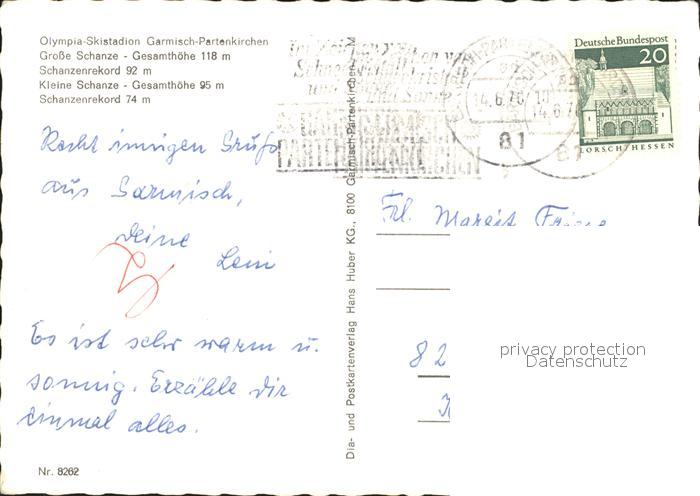 Olympia-Skistadion Garmisch-Partenkirchen
Große Schanze - Gesamthöhe 118 m
Schanzenrekord 92 m
Kleine Schanze - Gesamthöhe 95 m
Schanzenrekord 74 m
Recht innigen Gruß
aus Garmisch,
Deine
Leni
Es ist sehr warm u.
sonnig. Erzähle dir
einmal alles.
Nr. 8262
Dia- und Postkartenverlag Hans Huber KG., 8100 Garmisch-Partenkirchen
Deutsche Bundespost
20
LORSCH/HESSEN
GARMISCH-
PARTENKIRCHEN
14.6.70
81
81
Frl. Mareit
82
privacy protection
Datenschutz